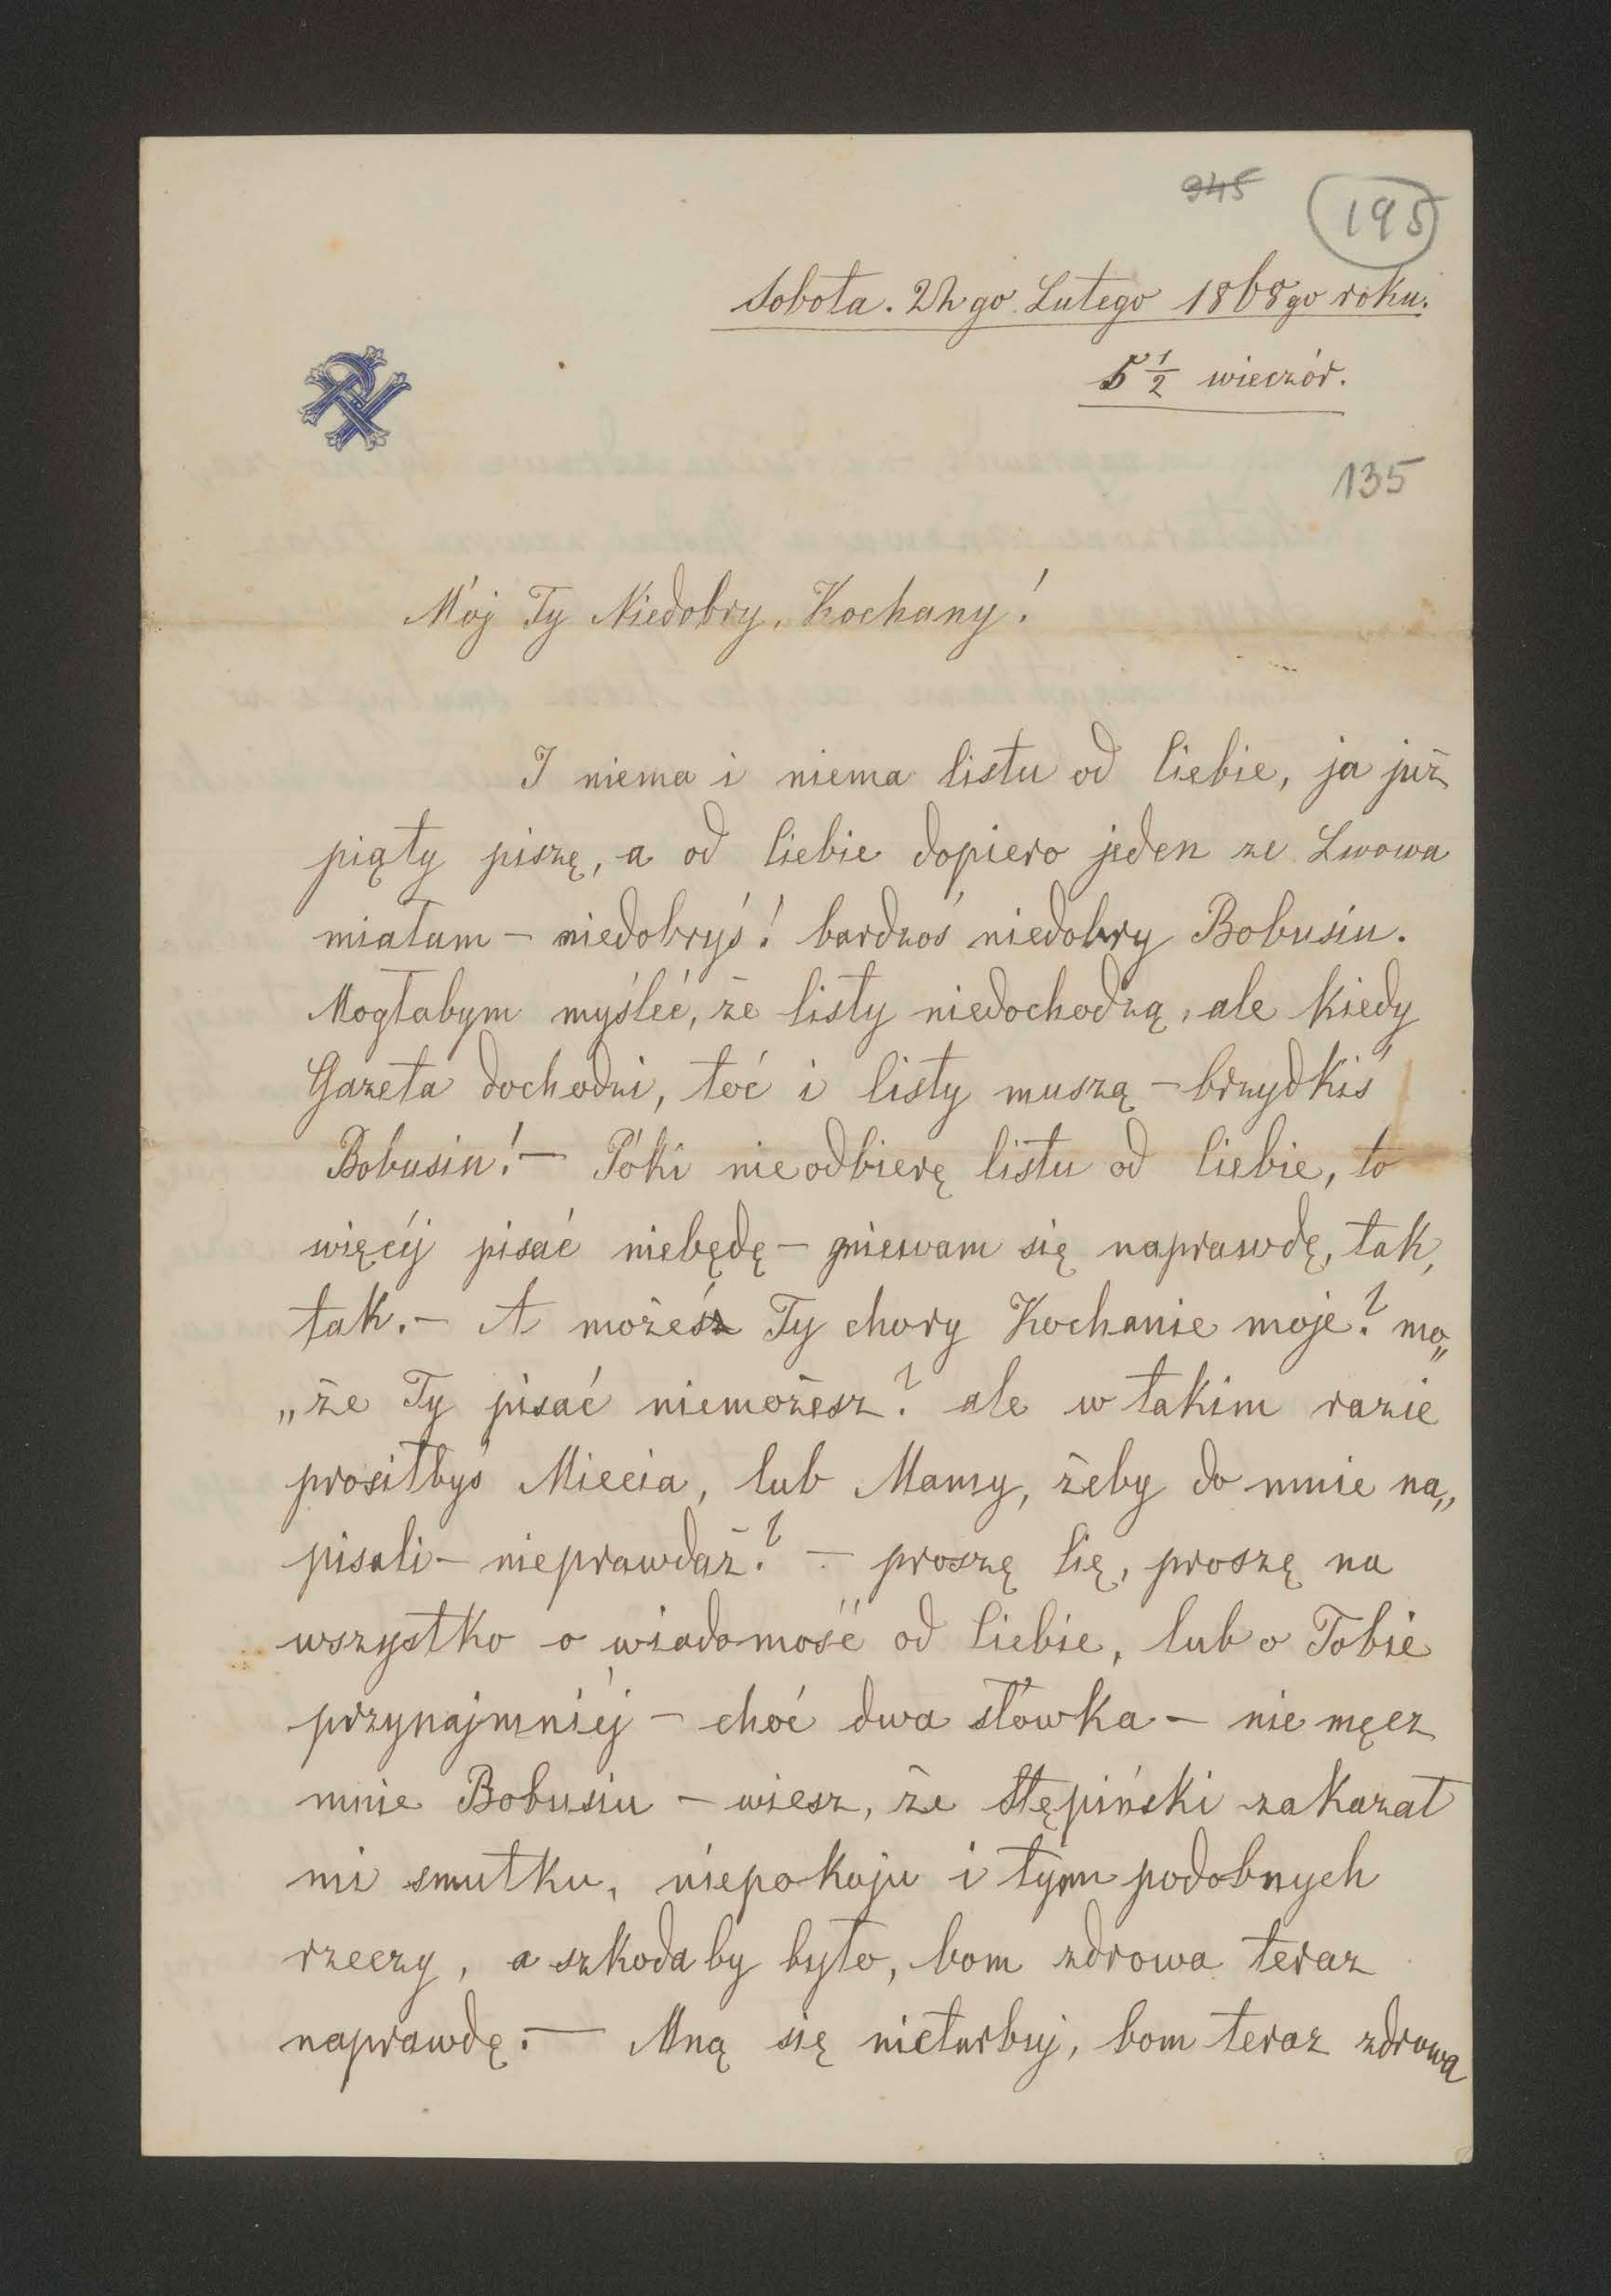 345
195
Sobota. 22go Lutego 1868go roku.
5 1/2 wieczór.
135
Mój Ty Niedobry, Kochany!
I niema i niema listu od Ciebie, ja już
piąty piszę, a od Ciebie dopiero jeden ze Lwowa
miałam – niedobryś! bardzoś niedobry Bobusiu.
Mogłabym myśleć, że listy niedochodzą, ale kiedy
Gazeta dochodzi, toć i listy muszą – brzydkiś
Bobusiu! – Póki nieodbierę listu od Ciebie, to
więcéj pisać niebędę – gniewam się naprawdę, tak,
tak. – A możeś Ty chory Kochanie moje? mo„
„że Ty pisać niemożesz? ale w takim razie
prosiłbyś Miecia, lub Mamy, żeby do mnie na„
pisali – nieprawdaż? – proszę Cię, proszę na
wszystko o wiadomość od Ciebie, lub o Tobie
przynajmniéj – choć dwa słówka – nie męcz
mnie Bobusiu – wiesz, że Stępiński zakazał
mi smutku, niepokoju i tym podobnych
rzeczy, a szkoda by było, bom zdrowa teraz
naprawdę. – Mną się nieturbuj, bom teraz zdrowa